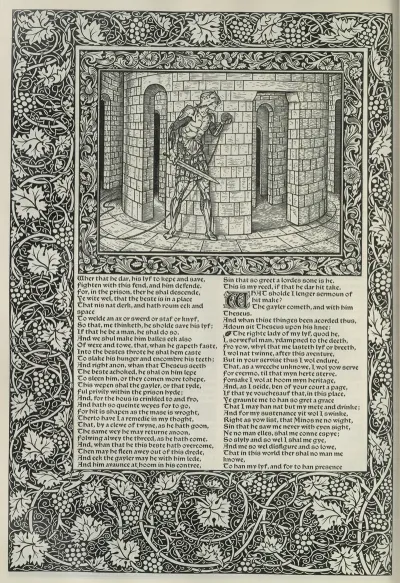 Wher that he dar, his lyf to kepe and save,
Fighten with this fend, and him defende.
For, in the prison, ther he shal descende,
Ye wite wel, that the beste is in a place
That nis nat derk, and hath roum eek and
space
To welde an ax or swerd or staf or knyf,
So that, me thinketh, he sholde save his lyf;
If that he be a man, he shal do so.
And we shul make him balles eek also
Of wexe and towe, that, whan he gapeth faste,
Into the bestes throte he shal hem caste
To slake his hunger and encombre his teeth;
And right anon, whan that Theseus seeth
The beste achoked, he shal on him lepe
To sleen him, or they comen more tohepe.
This wepen shal the gayler, or that tyde,
Ful privily within the prison hyde;
And, for the hous is crinkled to and fro,
And hath so queinte weyes for to go,
For hit is shapen as the mase is wroght,
Therto have I a remedie in my thoght,
That, by a clewe of twyne, as he hath goon,
The same wey he may returne anoon,
Folwing alwey the threed, as he hath come.
And, whan that he this beste hath overcome,
Then may he fleen awey out of this drede,
And eek the gayler may he with him lede,
And him avaunce at hoom in his contree,
Sin that so greet a lordes sone is he.
This is my reed, if that he dar hit take.
What sholde I lenger sermoun of
hit make?
The gayler cometh, and with him
Theseus.
And whan thise thinges been acorded thus,
Adoun sit Theseus upon his knee:
The righte lady of my lyf, quod he,
I, sorweful man, ydampned to the deeth,
Fro yow, whyl that me lasteth lyf or breeth,
I wol nat twinne, after this aventure,
But in your servise thus I wol endure,
That, as a wrecche unknowe, I wol yow serve
For evermo, til that myn herte sterve.
Forsake I wol at hoom myn heritage,
And, as I seide, ben of your court a page,
If that ye vouchesauf that, in this place,
Ye graunte me to han so gret a grace
That I may han nat but my mete and drinke;
And for my sustenance yit wol I swinke,
Right as yow list, that Minos ne no wight,
Sin that he saw me never with eyen sight,
Ne no man elles, shal me conne espye;
So slyly and so wel I shal me gye,
And me so wel disfigure and so lowe,
That in this world ther shal no man me
knowe,
To han my lyf, and for to han presence